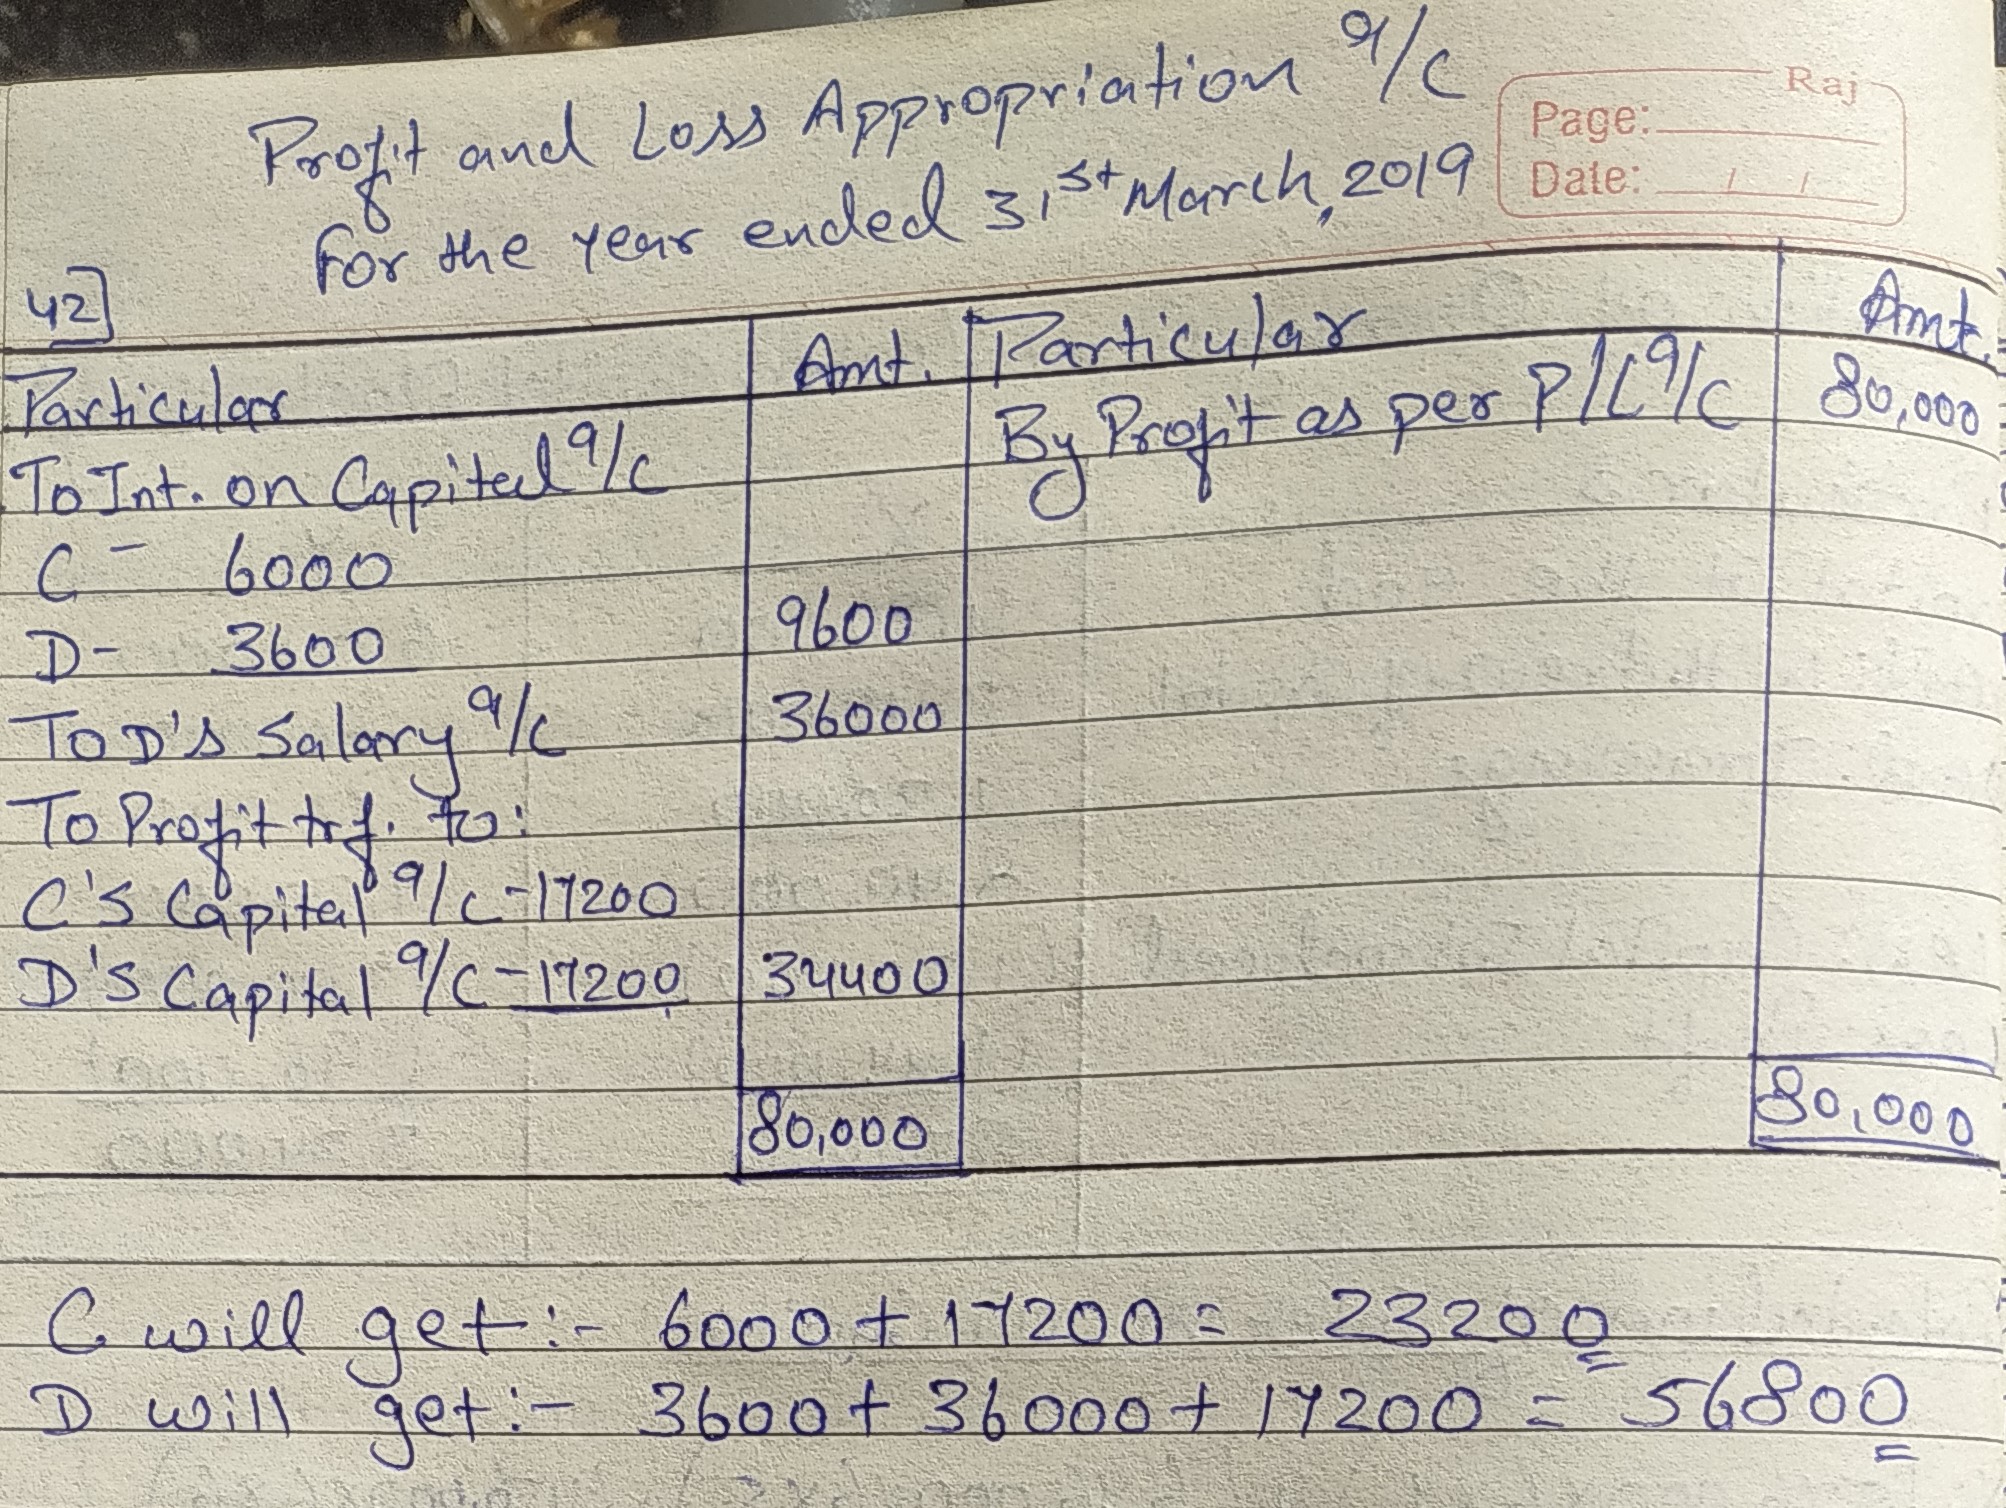 Profit and Loss Appropriation a/c
For the year ended 31st March, 2019
Raj
Page:
Date: / /
42]
Particular Amt. Particular Amt.
To Int. on Capital a/c By Profit as per P/L a/c 80,000
C - 6000
D - 3600 9600
To D's Salary a/c 36000
To Profit trf. to:
C's Capital a/c - 17200
D's Capital a/c - 17200 34400
80,000 80,000
C will get :- 6000 + 17200 = 23200
D will get :- 3600 + 36000 + 17200 = 56800